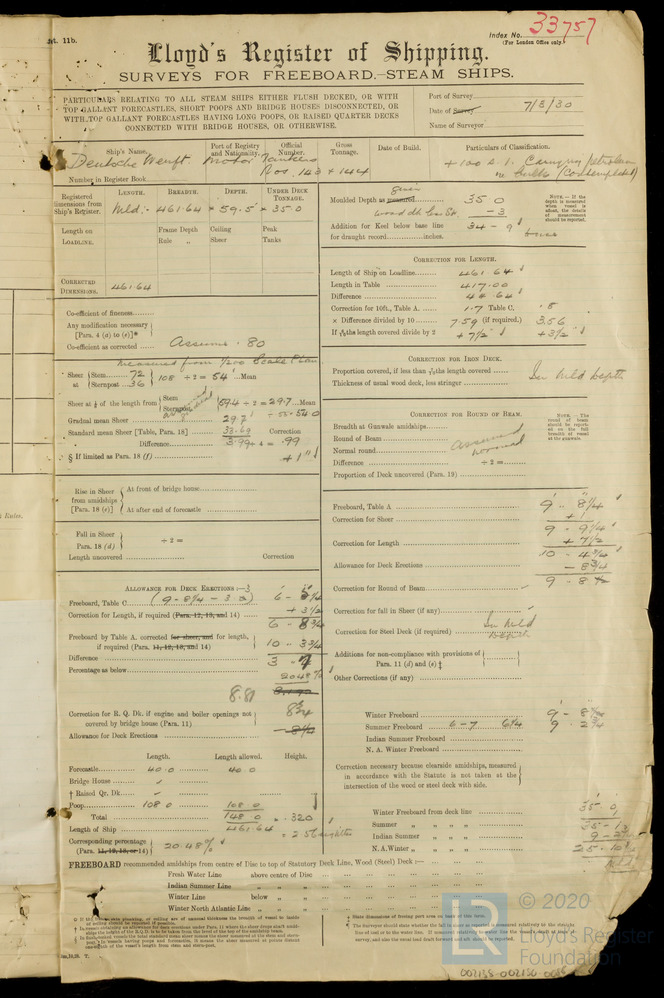 Rpt. 11b.
Index No. 33757
(For London Office only.)
Lloyd's Register of Shipping.
SURVEYS FOR FREEBOARD.—STEAM SHIPS.
PARTICULARS RELATING TO ALL STEAM SHIPS EITHER FLUSH DECKED, OR WITH
TOP GALLANT FORECASTLES, SHORT POOPS AND BRIDGE HOUSES DISCONNECTED, OR
WITH TOP GALLANT FORECASTLES HAVING LONG POOPS, OR RAISED QUARTER DECKS
CONNECTED WITH BRIDGE HOUSES, OR OTHERWISE.
Port of Survey
Date of Survey 7/3/30
Name of Surveyor
Ship's Name. Port of Registry and Nationality. Official Number. Gross Tonnage. Date of Build. Particulars of Classification.
Deutsche Werft Motor Tankers
Nos. 143 & 144
+100 A.1. Carrying petroleum
in bulk (Contemplated)
Number in Register Book
Registered dimensions from Ship's Register.
LENGTH. BREADTH. DEPTH. UNDER DECK TONNAGE.
Mld:- 461.64 × 59.5 × 35.0
Length on LOADLINE.
Frame Depth Ceiling Peak
Rule „ Sheer Tanks
CORRECTED DIMENSIONS. 461.64
Co-efficient of fineness
Any modification necessary
[Para. 4 (a) to (e)]*
Co-efficient as corrected Assume .80
Measured from 1/200 Scale Plan
Sheer at Stem 72
Sternpost 36
108 ÷ 2 = 54 Mean
Sheer at ⅛ of the length from Stem
Sternpost
59.4 ÷ 2 = 29.7 Mean
÷ .55 = 54.0
Gradual mean Sheer 29.7
Standard mean Sheer [Table, Para. 18] 33.69 Correction
Difference 3.99 ÷ 4 = .99
§ If limited as Para. 18 (f) +1"
Rise in Sheer from amidships [Para. 18 (e)]
At front of bridge house
At after end of forecastle
Fall in Sheer
Para. 18 (d) ÷ 2 =
Length uncovered Correction
ALLOWANCE FOR DECK ERECTIONS:—
Freeboard, Table C
Correction for Length, if required (Para. 12, 13, and 14) + 3½
Freeboard by Table A. corrected for sheer, and for length,
if required (Para. 11, 12, 13, and 14) 10 - 3¾
Difference
Percentage as below 20.48%
8.81
Correction for R. Q. Dk. if engine and boiler openings not
covered by bridge house (Para. 11) 8¾
Allowance for Deck Erections
Length. Length allowed. Height.
Forecastle 40.0 40.0
Bridge House
† Raised Qr. Dk.
Poop 108.0 108.0
Total 148.0 = .320
Length of Ship 461.64
Corresponding percentage
(Para. 11, 12, 13, or 14) 20.48%
Moulded Depth as measured given 35 0
- 3
34 - 9
Addition for Keel below base line
for draught record inches.
NOTE.—If the depth is measured when vessel is afloat, the details of measurement should be reported.
CORRECTION FOR LENGTH.
Length of Ship on Loadline 461.64
Length in Table 417.00
Difference 44.64
Correction for 10ft., Table A. 1.7 Table C. .8
× Difference divided by 10 7.59 (if required.) 3.56
If 6/10ths length covered divide by 2 + 7½" + 3½
CORRECTION FOR IRON DECK.
Proportion covered, if less than 7/10ths length covered
Thickness of usual wood deck, less stringer
In Mld Depth
CORRECTION FOR ROUND OF BEAM.
Breadth at Gunwale amidships
Round of Beam
Normal round
Assumed
normal
Difference ÷ 2 =
Proportion of Deck uncovered (Para. 19)
NOTE.—The round of beam should be reported on the full breadth of vessel at the gunwale.
Freeboard, Table A 9 - 8¼
Correction for Sheer + 1
9 - 9¼
Correction for Length + 7½
10 - 4¾
Allowance for Deck Erections - 8¾
Correction for Round of Beam
Correction for fall in Sheer (if any)
Correction for Steel Deck (if required) In Mld
Depth
Additions for non-compliance with provisions of
Para. 11 (d) and (e) ‡
Other Corrections (if any)
Winter Freeboard
Summer Freeboard
Indian Summer Freeboard
N. A. Winter Freeboard
Correction necessary because clearside amidships, measured
in accordance with the Statute is not taken at the
intersection of the wood or steel deck with side.
Winter Freeboard from deck line
Summer „ „ „ „
Indian Summer „ „ „
N.A. Winter „ „ „ „
35 - 0
FREEBOARD recommended amidships from centre of Disc to top of Statutory Deck Line, Wood (Steel) Deck :—
Fresh Water Line above centre of Disc
Indian Summer Line „ „
Winter Line below „
Winter North Atlantic Line „ „
© 2020
LR
Lloyd's Register
Foundation